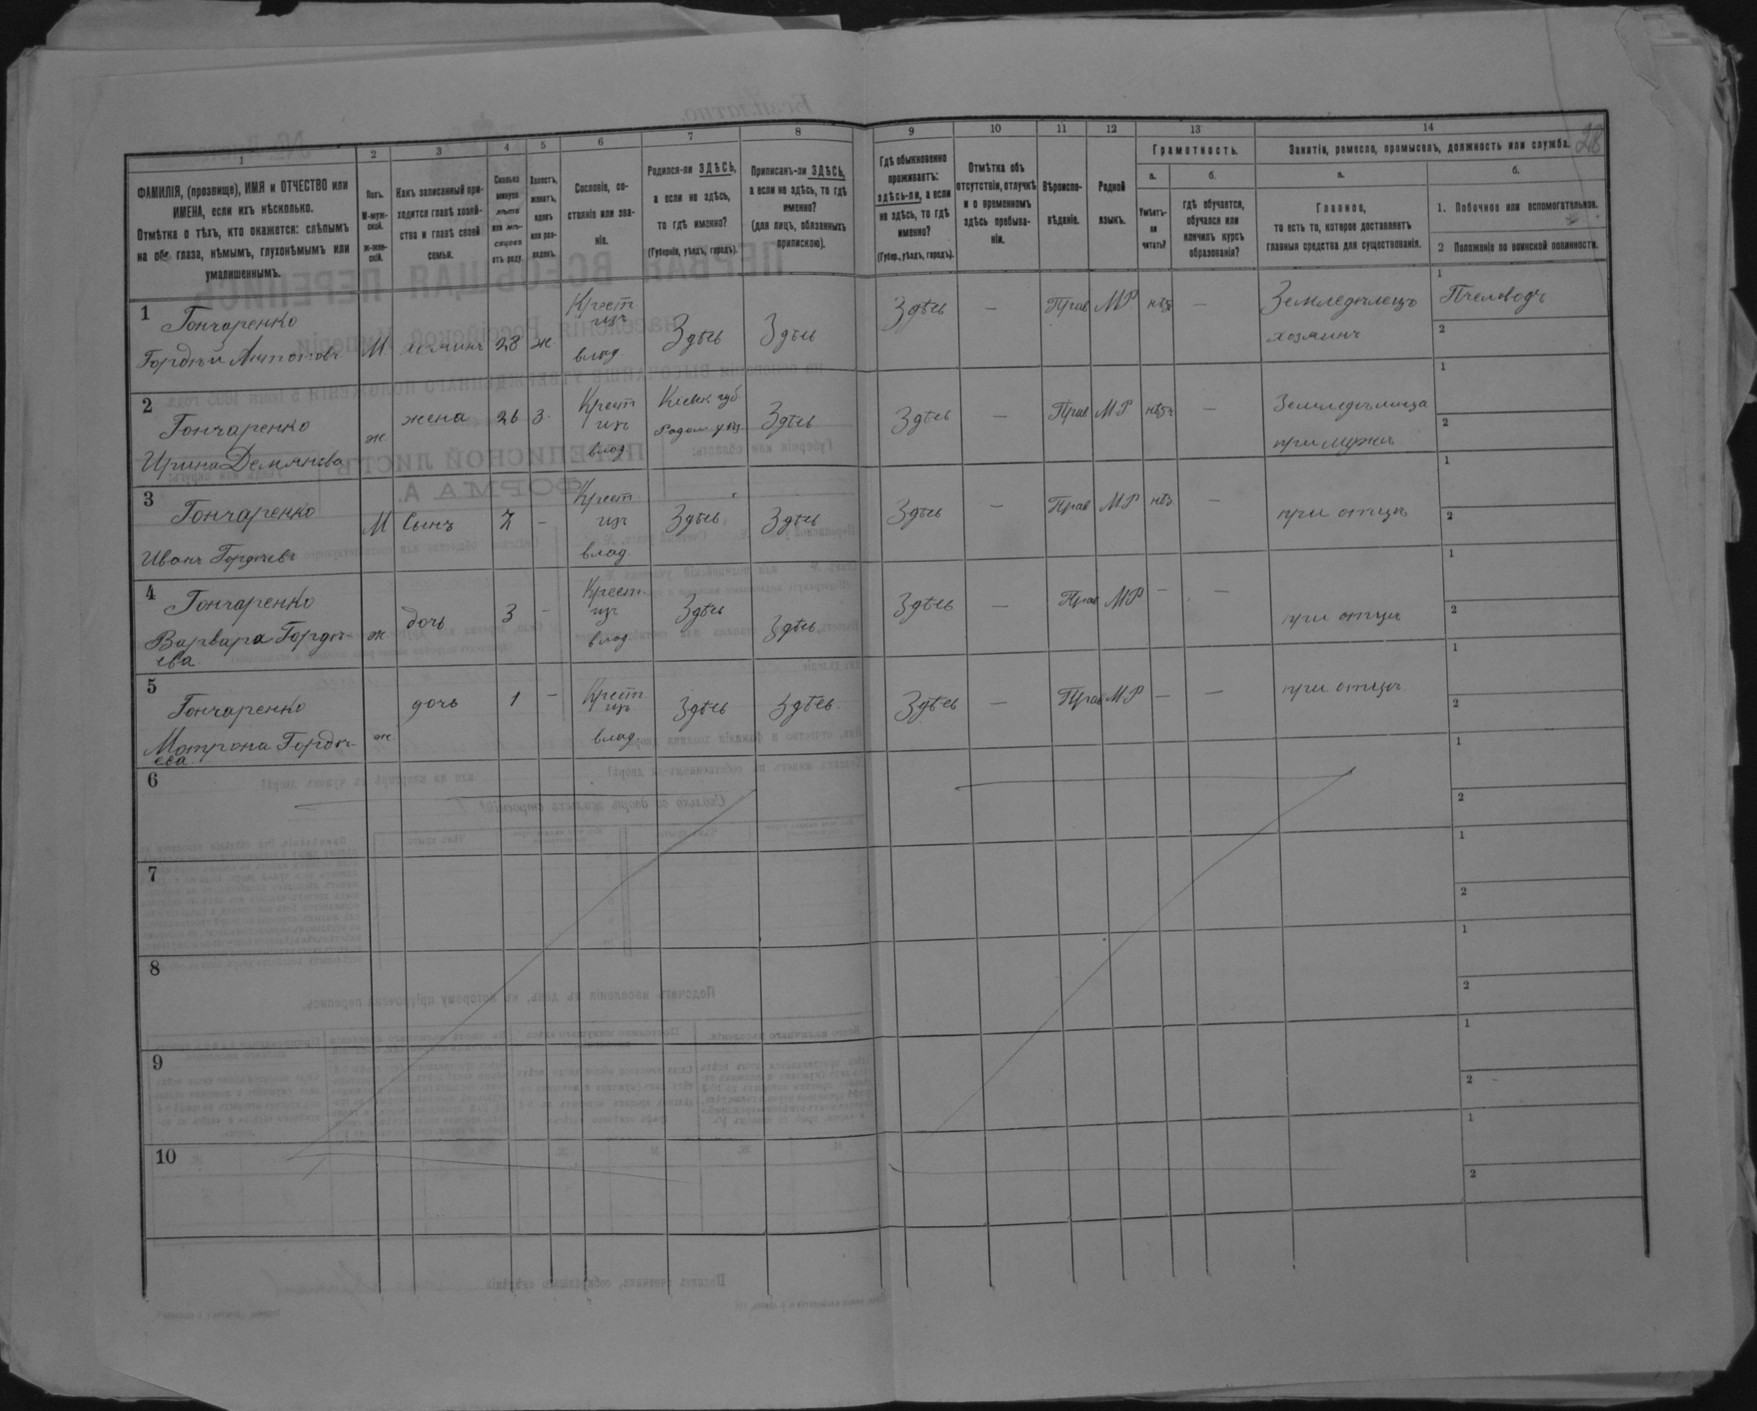 28
1 2 3 4 5 6 7 8 9 10 11 12 13 14
ФАМИЛІЯ, (прозвище), ИМЯ и ОТЧЕСТВО или
ИМЕНА, если ихъ нѣсколько.
Отмѣтка о тѣхъ, кто окажется: слѣпымъ
на оба глаза, нѣмымъ, глухонѣмымъ или
умалишеннымъ.
Полъ.
М-муж-
ской.
Ж-жен-
скій.
Какъ записанный при-
ходится главѣ хозяй-
ства и главѣ своей
семьи.
Сколько
минуло
лѣтъ
или мѣ-
сяцевъ
отъ роду.
Холостъ,
женатъ,
вдовъ
или раз-
веденъ.
Сословіе, со-
стояніе или зва-
ніе.
Родился-ли ЗДѢСЬ,
а если не здѣсь,
то гдѣ именно?
(Губернія, уѣздъ, городъ).
Приписанъ-ли ЗДѢСЬ,
а если не здѣсь, то гдѣ
именно?
(для лицъ, обязанныхъ
припискою).
Гдѣ обыкновенно
проживаетъ:
здѣсь-ли, а если
не здѣсь, то гдѣ
именно?
(Губер., уѣздъ, городъ).
Отмѣтка объ
отсутствіи, отлучкѣ
и о временномъ
здѣсь пребыва-
ніи.
Вѣроиспо-
вѣданіе.
Родной
языкъ.
Грамотность.
а.
Умѣетъ-
ли
читать?
б.
гдѣ обучается,
обучался или
кончилъ курсъ
образованія?
Занятіе, ремесло, промыселъ, должность или служба.
а.
Главное,
то есть то, которое доставляетъ
главныя средства для существованія.
б.
1. Побочное или вспомогательное.
2 Положеніе по воинской повинности.
1 Гончаренко
Гордѣй Антоновъ
М хозяинъ 28 ж
Крест
изъ
влад
Здѣсь Здѣсь Здѣсь — Прав МР нѣтъ —
Земледѣлецъ
хозяинъ
1 Пчеловодъ
2
2 Гончаренко
Ирина Демянова
ж жена 26 з
Крест
изъ
влад
Кіевск. губ
Радом. уѣз.
Здѣсь Здѣсь — Прав МР нѣтъ —
Земледѣлица
при мужѣ
1
2
3 Гончаренко
Иванъ Гордѣевъ
М Сынъ 7 —
Крест
изъ
влад
Здѣсь Здѣсь Здѣсь — Прав МР нѣтъ —
при отцѣ
1
2
4 Гончаренко
Варвара Гордѣ-
ева
ж дочь 3 —
Крест
изъ
влад
Здѣсь Здѣсь Здѣсь — Прав МР — —
при отцѣ
1
2
5 Гончаренко
Матрона Гордѣ-
ева
ж дочь 1 —
Крест
изъ
влад
Здѣсь Здѣсь Здѣсь — Прав МР — —
при отцѣ
1
2
6
1
2
7
1
2
8
1
2
9
1
2
10
1
2